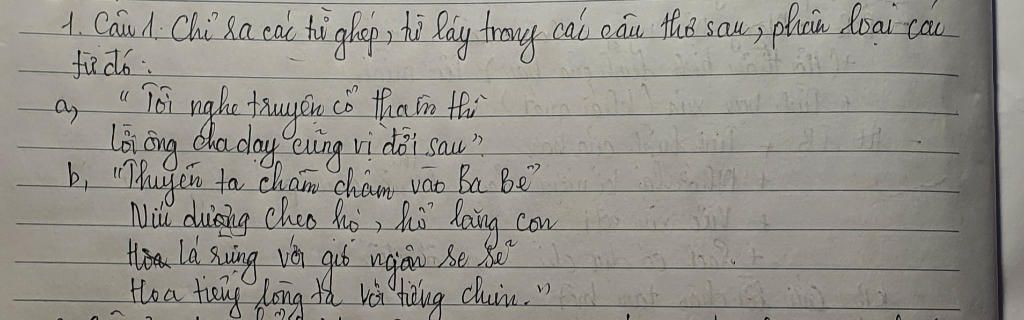 1. Câu 1. Chỉ ra các từ ghép, từ láy trong các câu thơ sau, phân loại các
từ đó:
a, "Tôi nghe truyện cổ thầm thì
Lời ông cha dạy cũng vì đời sau"
b, "Thuyền ta chầm chậm vào Ba Bể
Núi dựng cheo leo, hồ lặng con
lá rừng với gió ngân se sẽ
Họa tiếng lòng ta với tiếng chim."